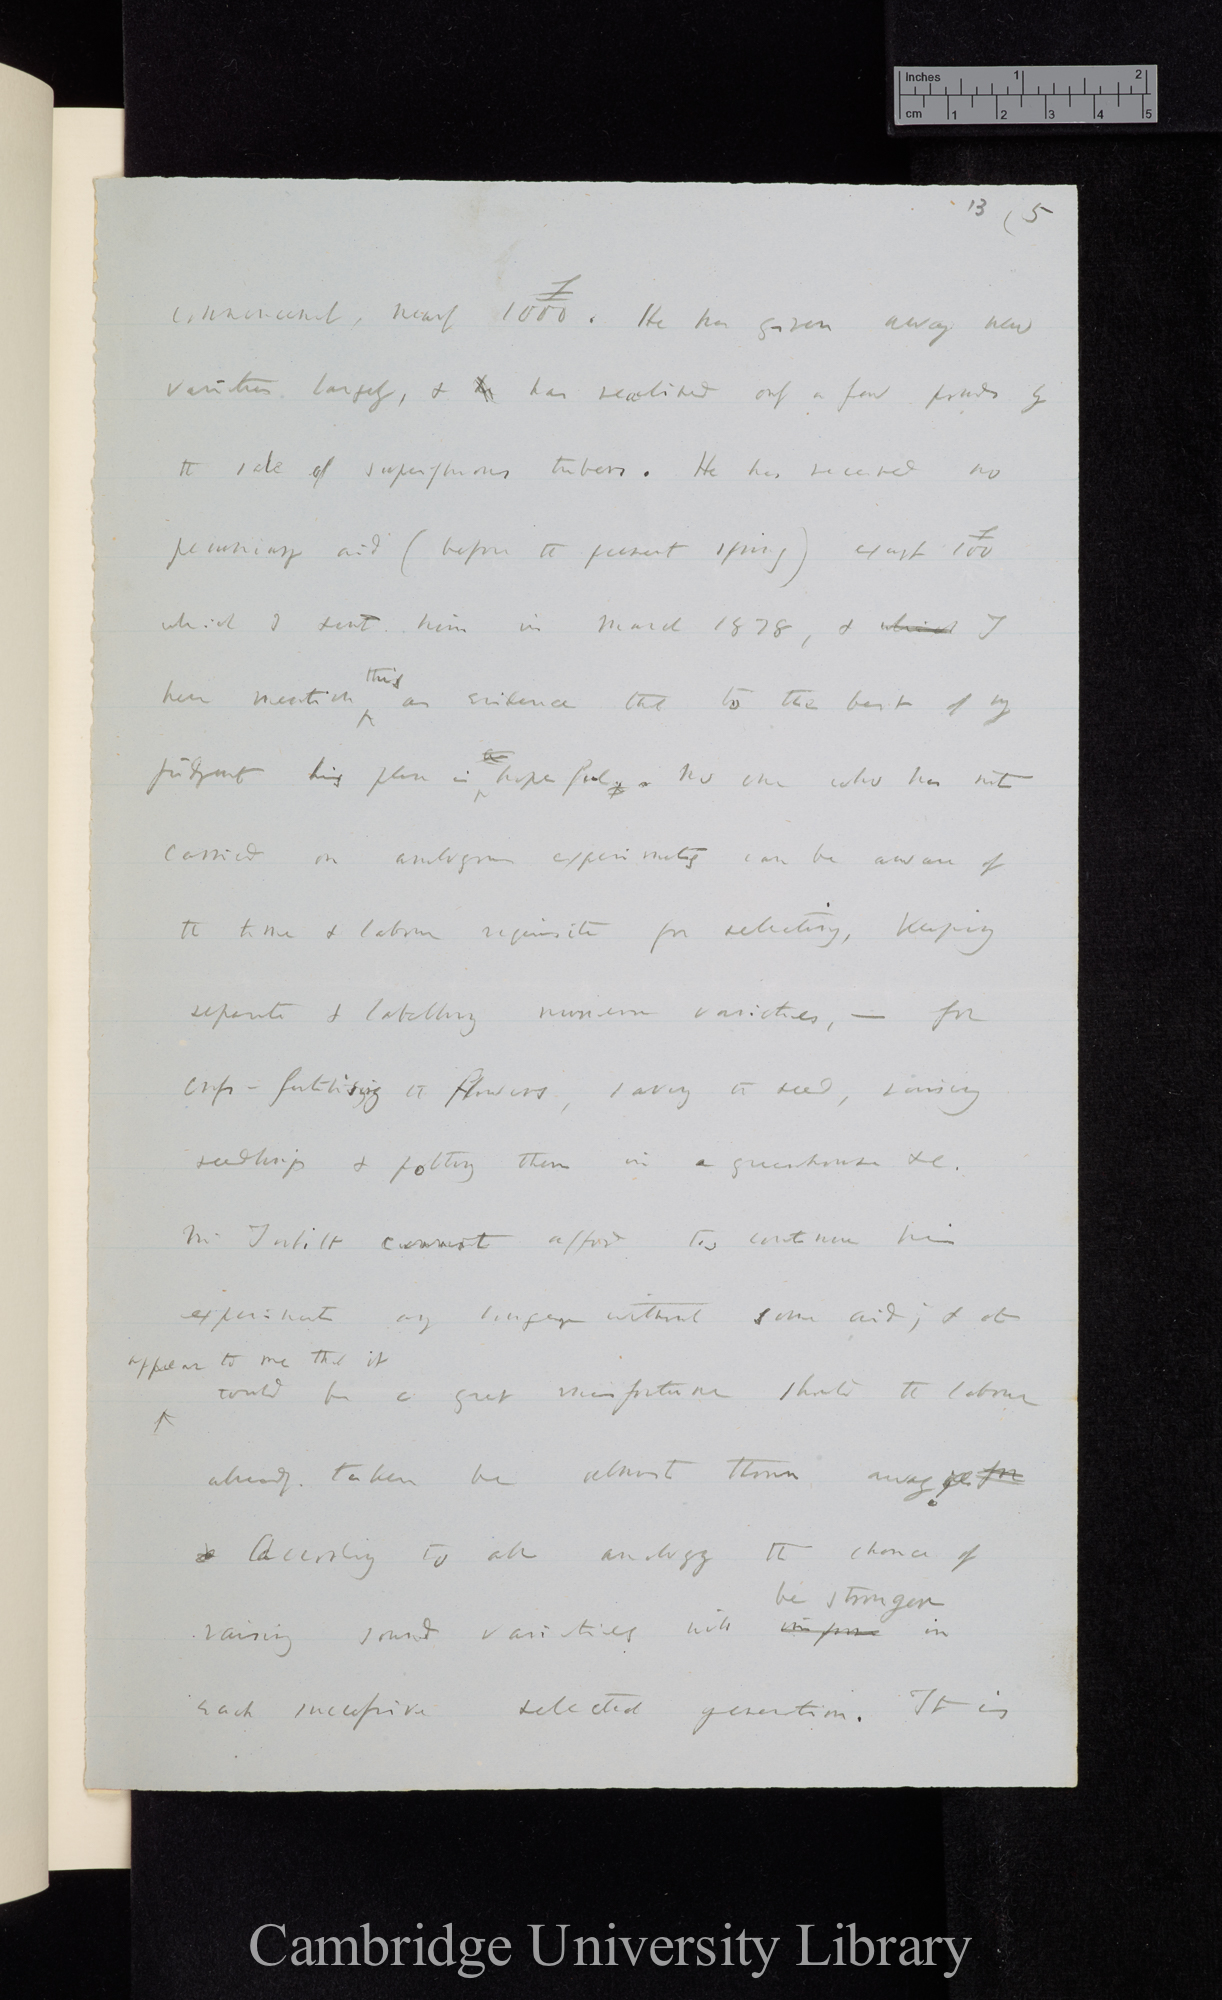 Inches 1 2
cm 1 2 3 4 5
13 (5
commencement, nearly 1000£. He has given away new
varieties largely, & he has realised only a few pounds by
the sale of superfluous tubers. He has received no
pecuniary aid (before the present spring) except 100£
which I sent him in March 1878, & which I
this
here mention as evidence that to the best of my
judgment his plan is a hopeful. No one who has not
carried on analogous experiments can be aware of
the time & labour requisite for selecting, keeping
separate & labelling numerous varieties, — for
cross-fertilising the flowers, saving the seed, raising
seedlings & potting them in a greenhouse &c.
Mr Torbitt cannot afford to continue his
experiments any longer without some aid; & it
appears to me that it
would be a great misfortune should the labour
already taken be almost thrown away for
& According to all analogy the chance of
be stronger
raising sound varieties will improve in
each successive selected generation. It is
Cambridge University Library